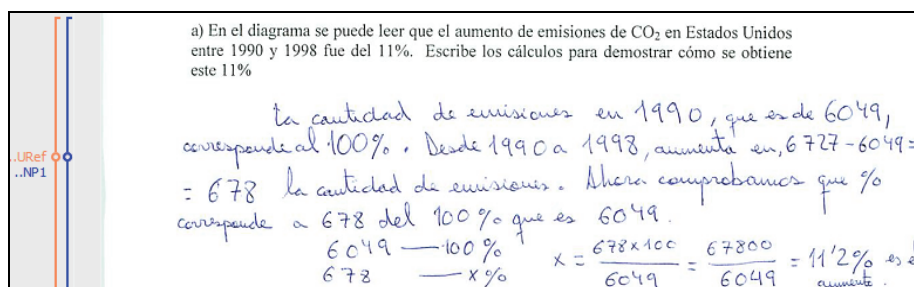 a) En el diagrama se puede leer que el aumento de emisiones de CO₂ en Estados Unidos
entre 1990 y 1998 fue del 11%. Escribe los cálculos para demostrar cómo se obtiene
este 11%
La cantidad de emisiones en 1990, que es de 6049,
corresponde al 100%. Desde 1990 a 1998, aumenta en, 6727-6049=
= 678 la cantidad de emisiones. Ahora comprobamos que %
corresponde a 678 del 100% que es 6049.
..URef
..NP1
6049 — 100%
678 — x%
x = 678x100 / 6049 = 67800 / 6049 = 11'2% es e
aumento.